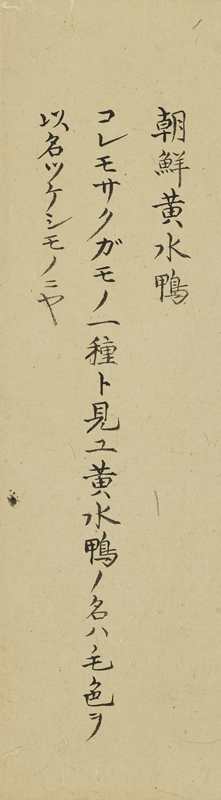 朝鮮黄水鴨
コレモサクガモノ一種ト見ユ黄水鴨ノ名ハ毛色ヲ
以名ツケシモノニヤ